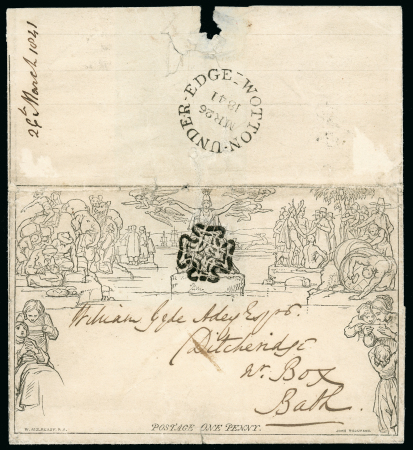 29th March 1841
WOTTON-UNDER-EDGE
MR 26
1841
William Gyde Adey Esqre
Ditcheridge
Nr. Box
Bath.
W. MULREADY. R.A.
POSTAGE ONE PENNY.
JOHN THOMPSON